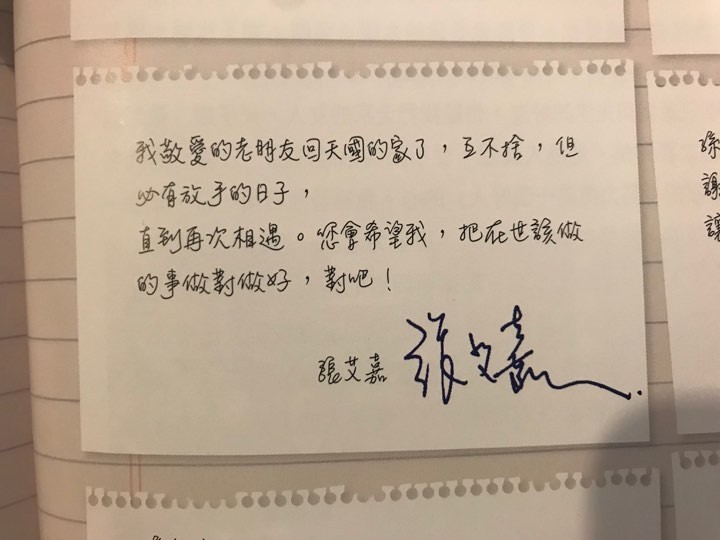 我敬愛的老朋友回天國的家了，互不捨，但
必有放手的日子，
直到再次相遇。您會希望我，把在世該做
的事做對做好，對吧！
張艾嘉 張艾嘉
孫
謝
讓